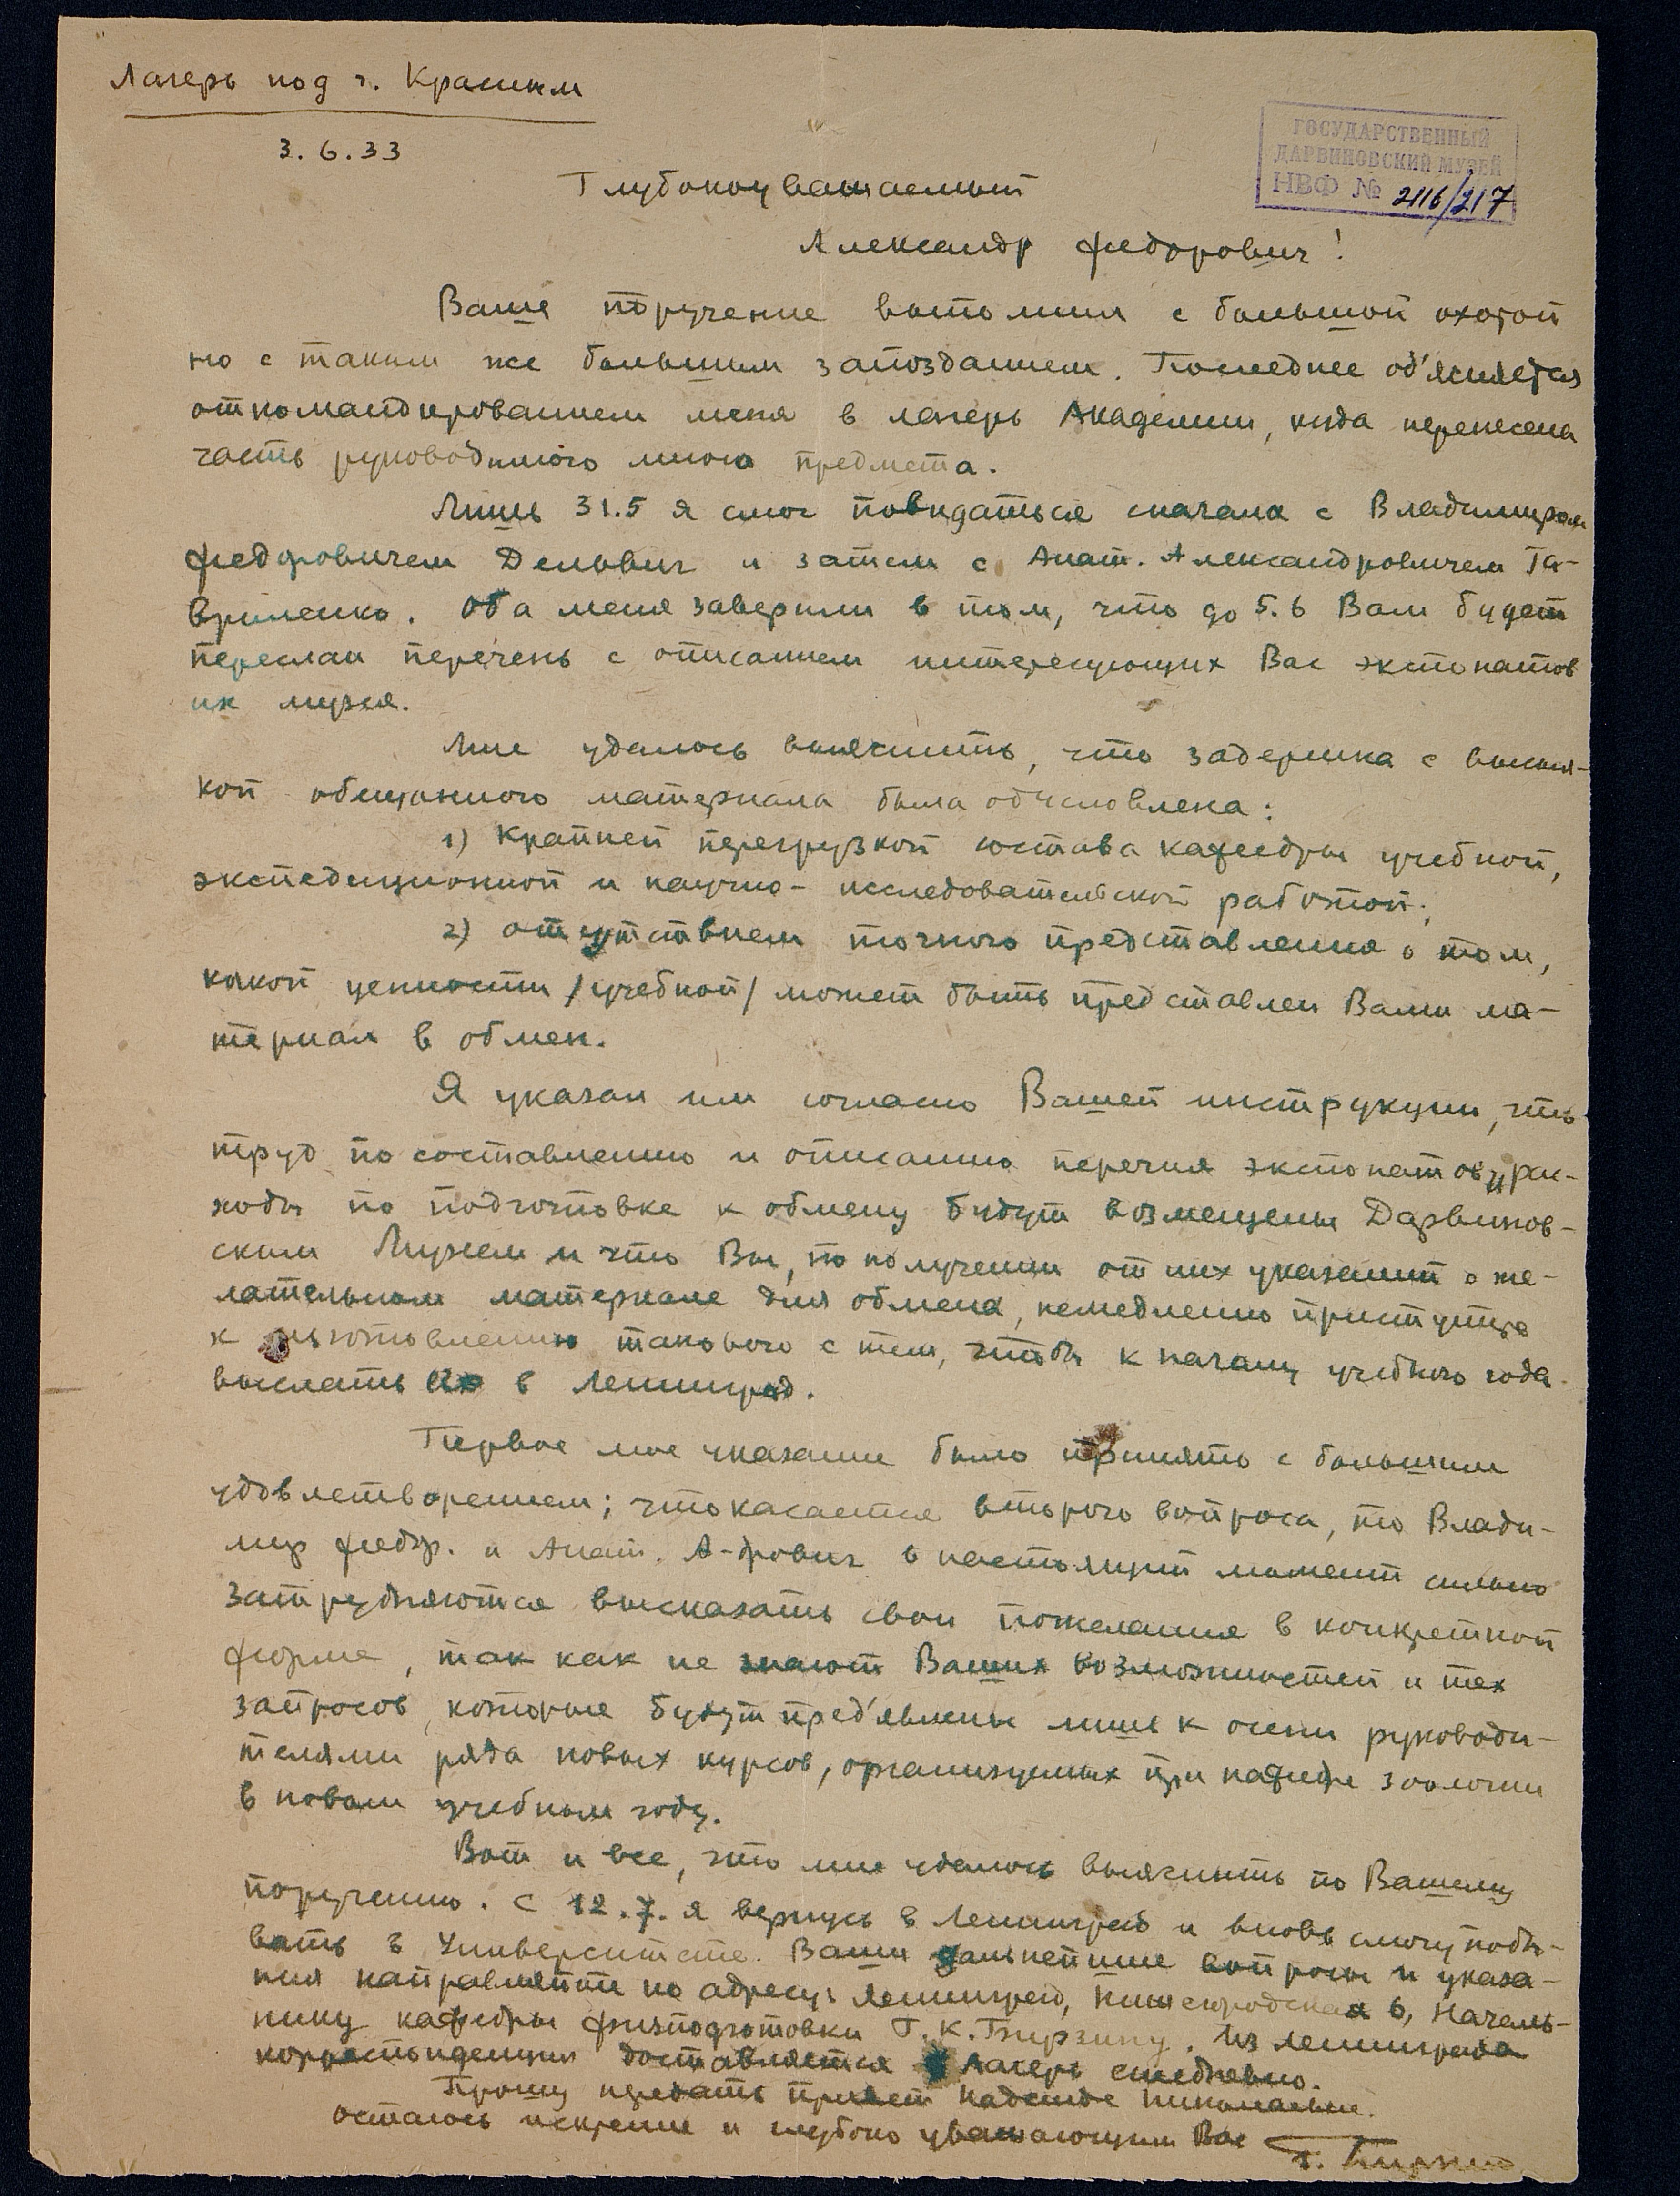 Лагерь под г. Красным
3.6.33
ГОСУДАРСТВЕННЫЙ
ДАРВИНОВСКИЙ МУЗЕЙ
НВФ № 2116/217
Глубокоуважаемый
Александр Федорович!
Ваше поручение выполнил с большой охотой
но с таким же большим запозданием. Последнее об'ясняется
откомандированием меня в лагерь Академии, куда перенесена
часть руководимого мною предмета.
Лишь 31.5 я смог повидаться сначала с Владимиром
Федоровичем Дельвиг и затем с Анат. Александровичем Га-
вриленко. Оба меня заверили в том, что до 5.6 Вам будет
переслан перечень с описанием интересующих Вас экспонатов
их музея.
Мне удалось выяснить, что задержка с высыл-
кой обещанного материала была обусловлена:
1) Крайней перегрузкой состава кафедры учебной,
экспедиционной и научно-исследовательской работой;
2) отсутствием точного представления о том,
какой ценности /учебной/ может быть представлен Вами ма-
териал в обмен.
Я указал им согласно Вашей инструкции, что
труд по составлению и описанию перечня экспонатов и рас-
ходы по подготовке к обмену будут возмещены Дарвинов-
ским Музеем и что Вы, по получении от них указаний о же-
лательном материале для обмена, немедленно приступите
к изготовлению такового с тем, чтобы к началу учебного года
выслать их в Ленинград.
Первое мое указание было принято с большим
удовлетворением; что касается второго вопроса, то Влади-
мир Федор. и Анат. А-дрович в настоящий момент сильно
затрудняются высказать свои пожелания в конкретной
форме, так как не знают Ваших возможностей и тех
запросов, которые будут пред'явлены лишь к осени руководи-
телями ряда новых курсов, организуемых при кафедре зоологии
в новом учебном году.
Вот и все, что мне удалось выяснить по Вашему
поручению. С 12.7. я вернусь в Ленинград и вновь смогу побы-
вать в Университете. Ваши дальнейшие вопросы и указа-
ния направляйте по адресу: Ленинград, Нижегородская 6, Началь-
нику кафедры физподготовки Г.К. Бирзину. Из Ленинграда
корреспонденция доставляется в лагерь ежедневно.
Прошу передать привет Надежде Николаевне.
Остаюсь искренне и глубоко уважающим Вас
Г. Бирзин